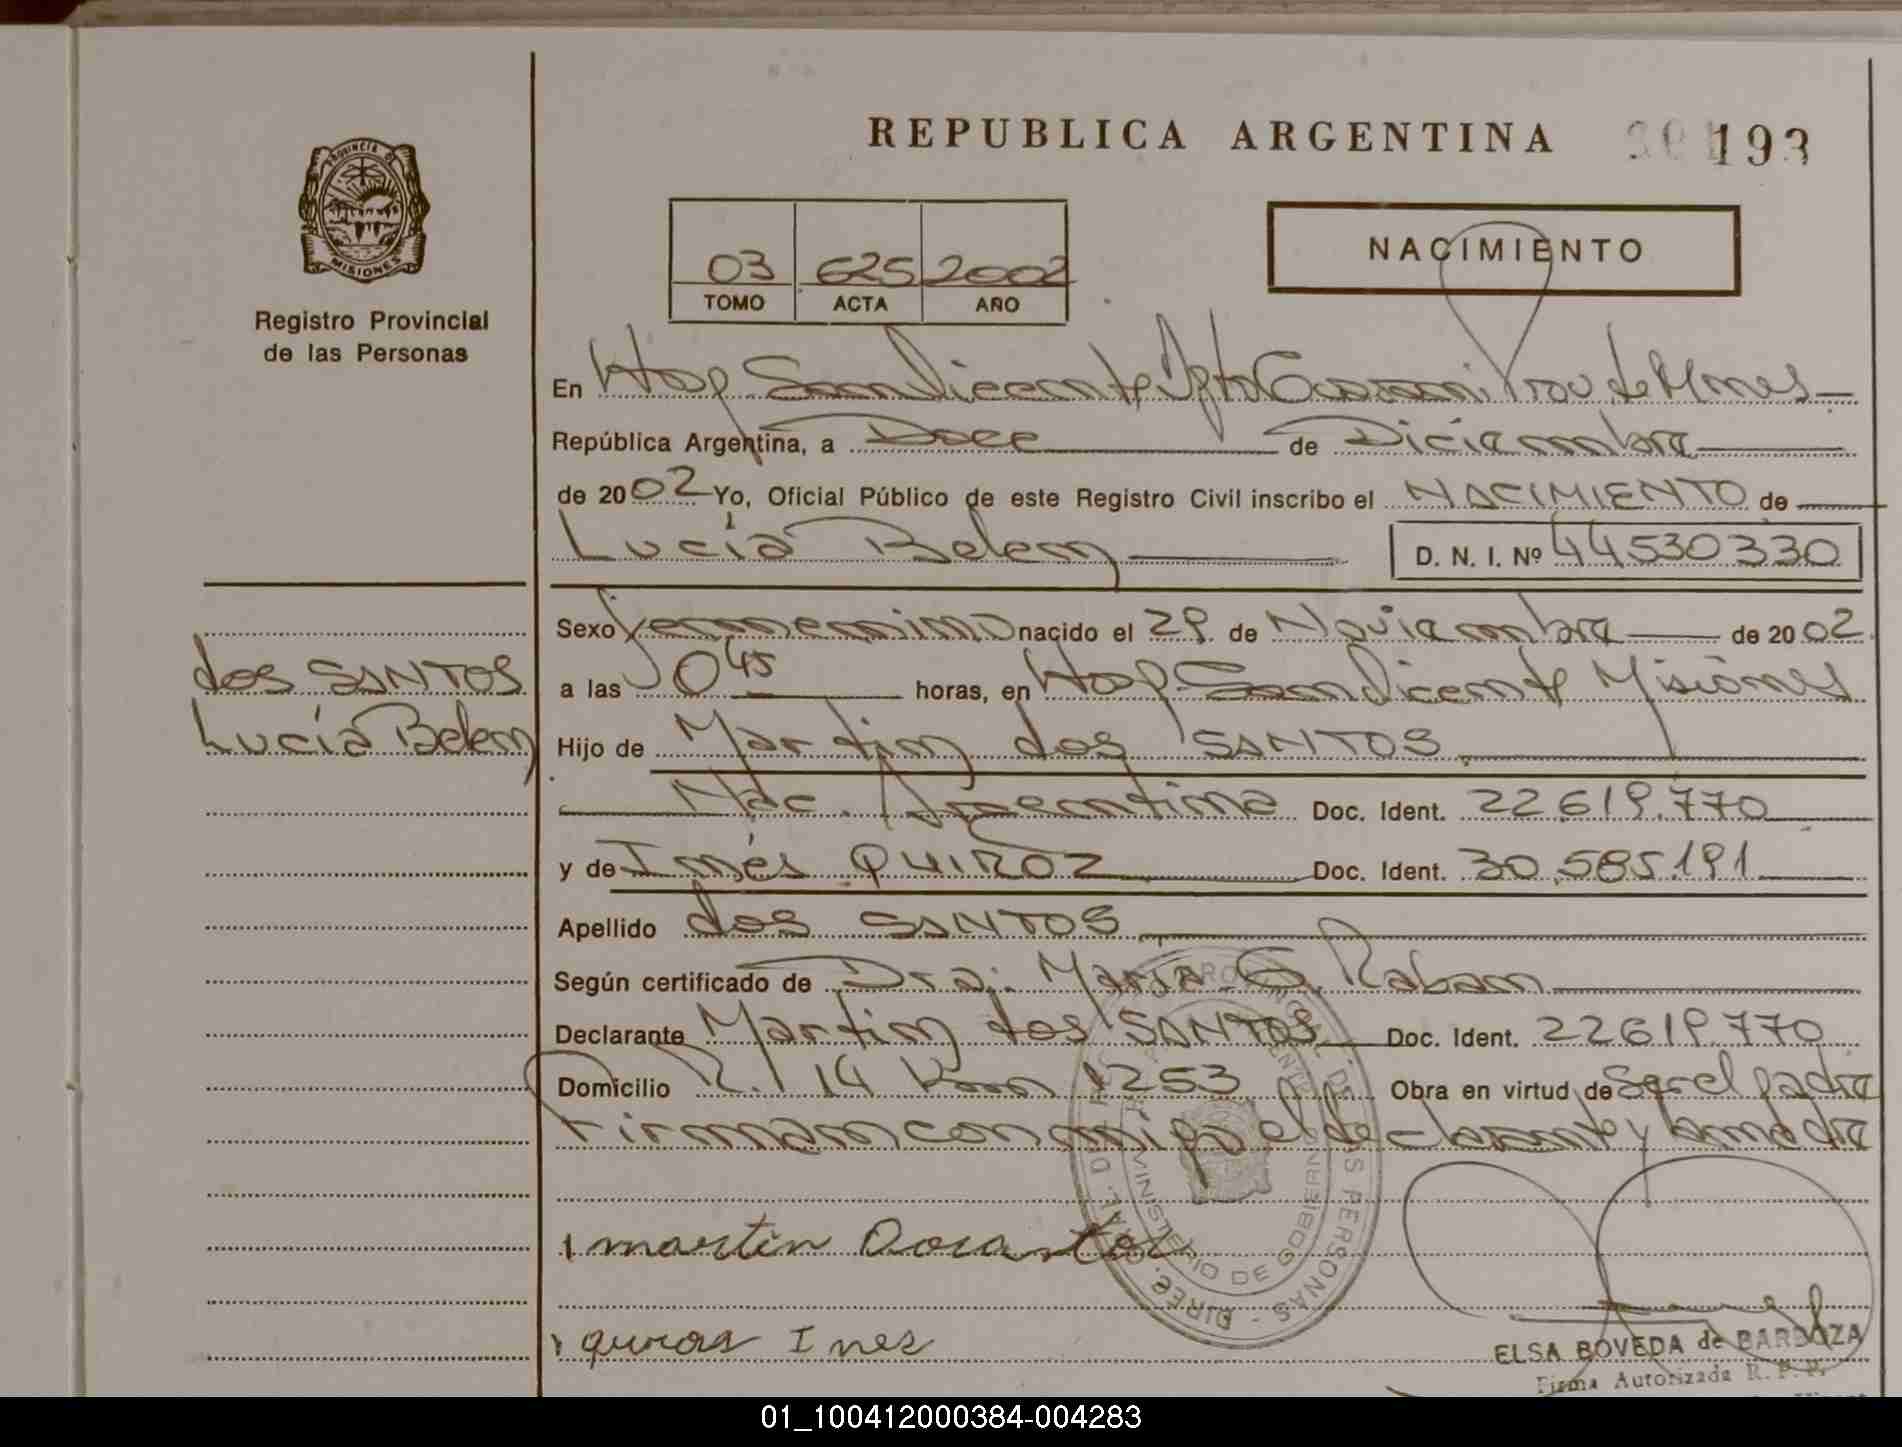 REPUBLICA ARGENTINA 193
PROVINCIA DE
MISIONES
Registro Provincial
de las Personas
03 625 2002
TOMO ACTA AÑO
NACIMIENTO
En Hosp San Vicente Dpto Guarani Prov de Mnes
República Argentina, a Doce de Diciembre
de 2002 Yo, Oficial Público de este Registro Civil inscribo el NACIMIENTO de
Lucía Belen D. N. I. Nº 44530330
Sexo femenino nacido el 29 de Noviembre de 2002
dos SANTOS
Lucía Belen
a las 0 45 horas, en Hosp San Vicente Misiones
Hijo de Martin dos SANTOS
Nac. Argentina Doc. Ident. 22.619.770
y de Inés QUIROZ Doc. Ident. 30.585.191
Apellido dos SANTOS
Según certificado de Dra. Maria G. Raban
Declarante Martin dos SANTOS Doc. Ident. 22619.770
Domicilio R. 14 Km 1253 Obra en virtud de ser el padre
Firman conmigo el declarante y la madre
martin
Ines
DIREC. GRAL. DEL REG. PROVINCIAL DE LAS PERSONAS
MINISTERIO DE GOBIERNO
ELSA BOVEDA de BARBOZA
Firma Autorizada R. P. P.
01_100412000384-004283